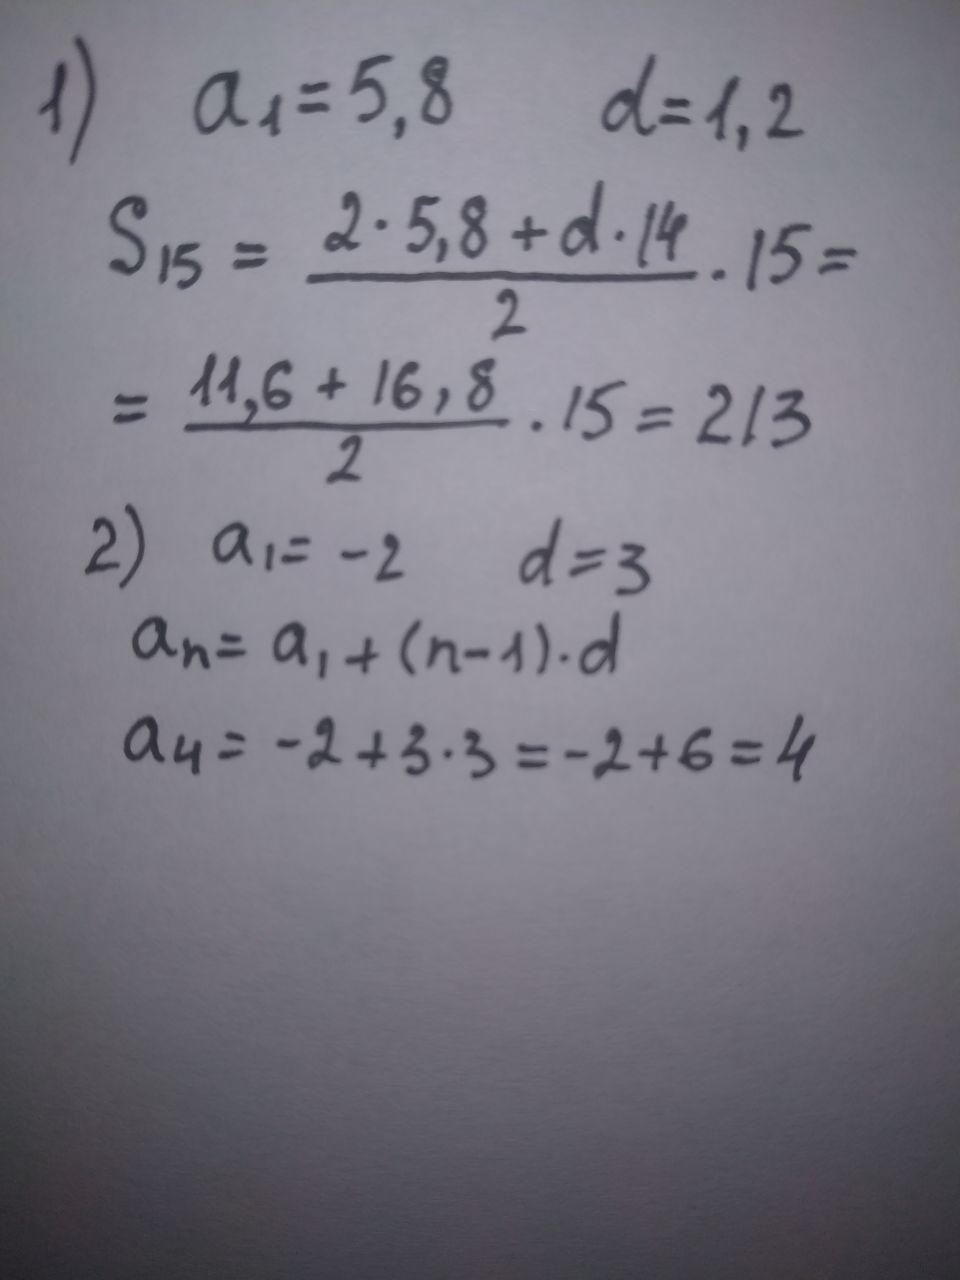 1) a₁ = 5,8 d = 1,2
S₁₅ = (2 · 5,8 + d · 14)/2 · 15 =
= (11,6 + 16,8)/2 · 15 = 213
2) a₁ = -2 d = 3
aₙ = a₁ + (n-1) · d
a₄ = -2 + 3 · 3 = -2 + 6 = 4